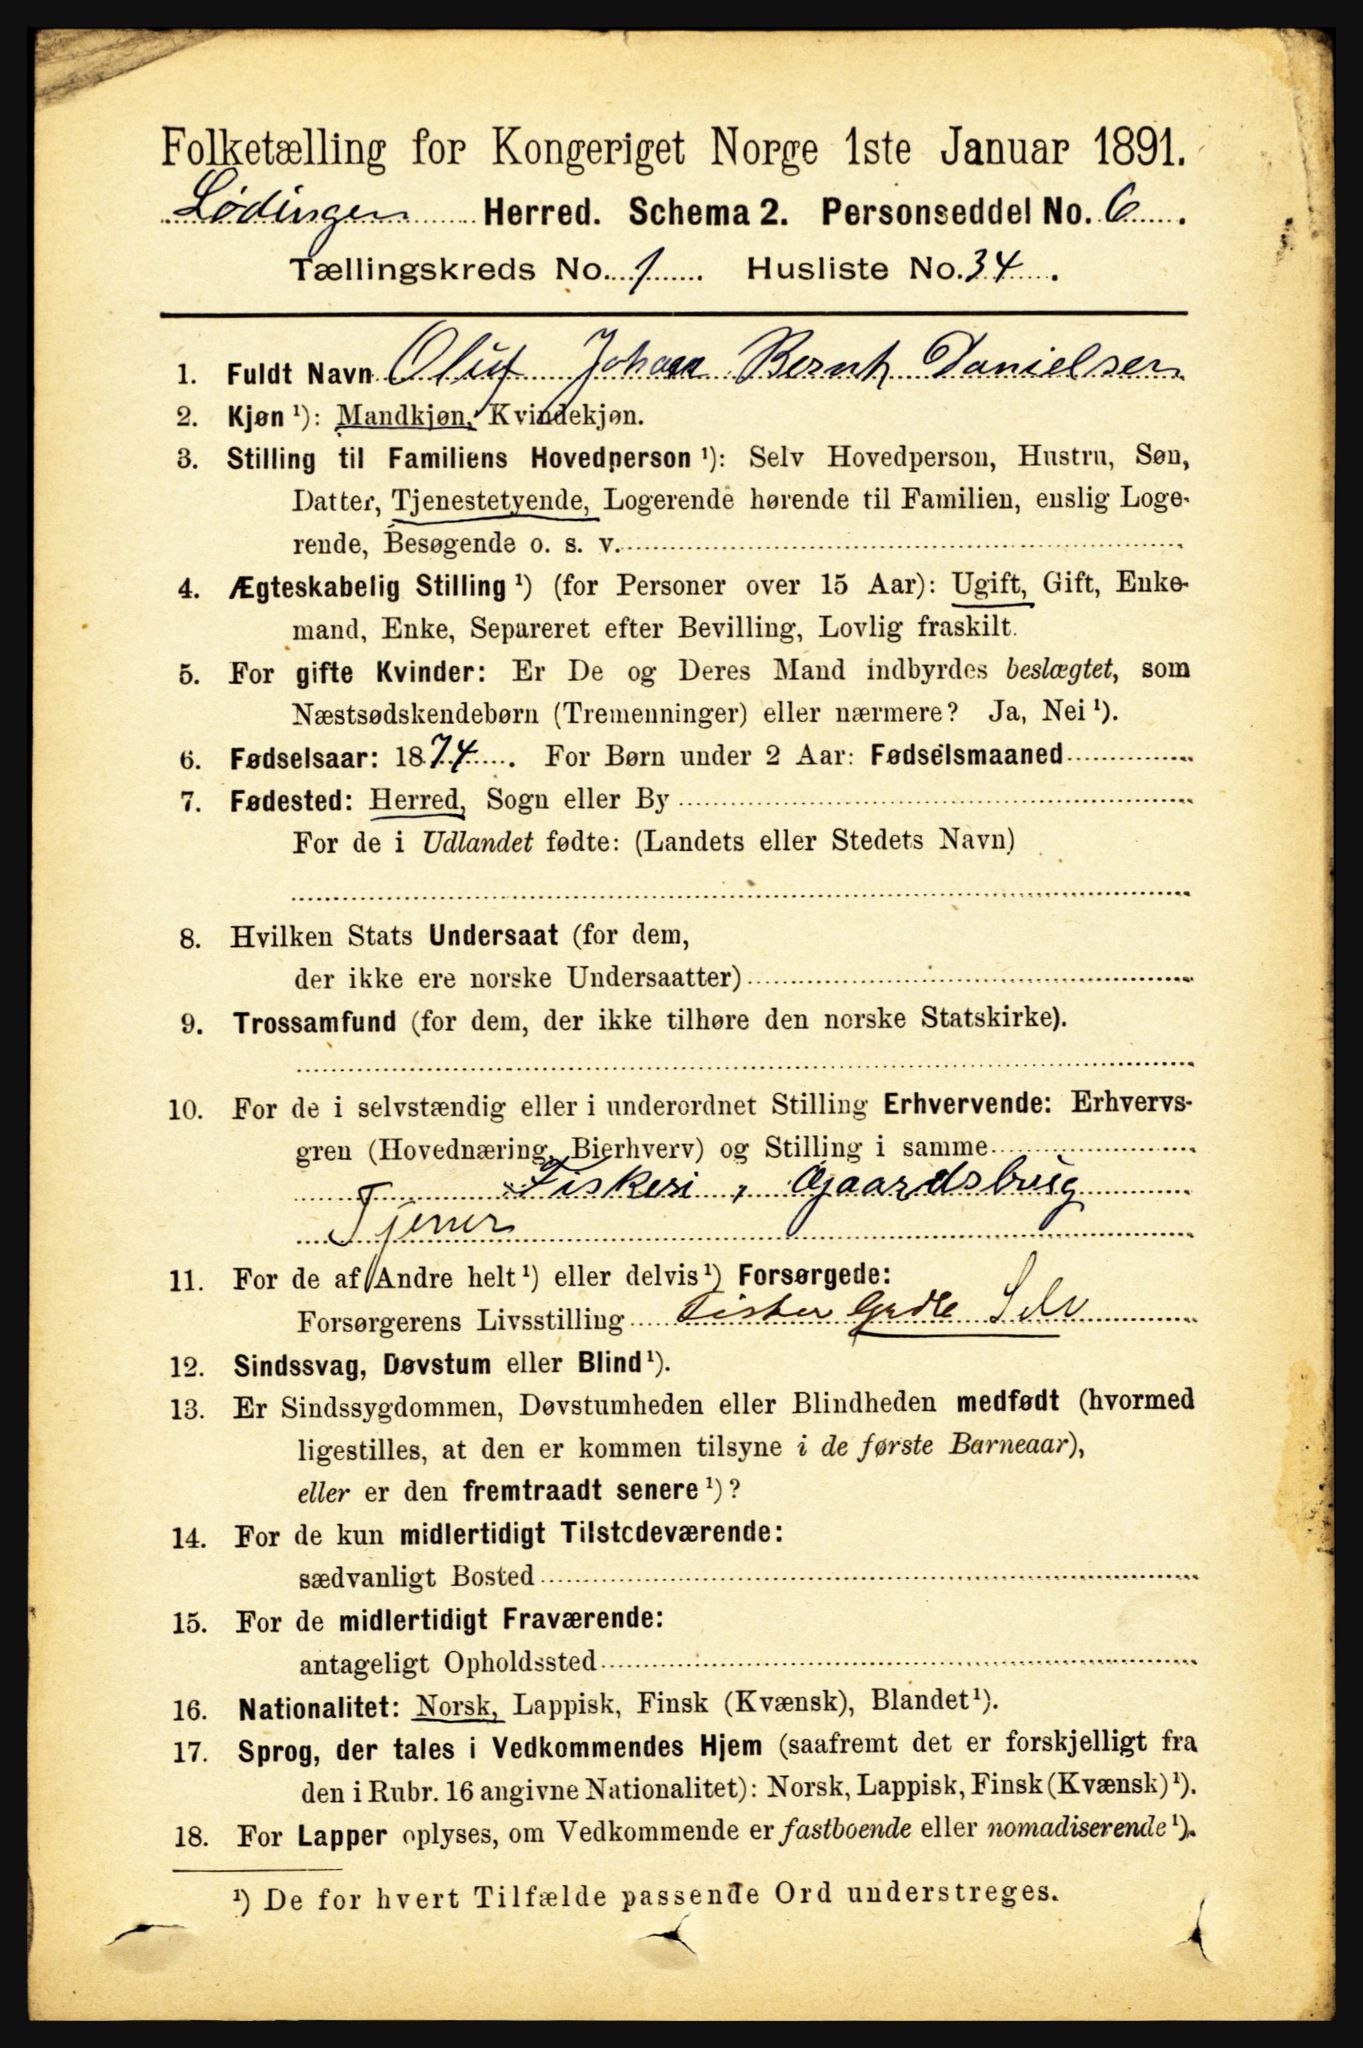 Folketælling for Kongeriget Norge 1ste Januar 1891.
Lødingen Herred. Schema 2. Personseddel No. 6.
Tællingskreds No. 1. Husliste No. 34.
1. Fuldt Navn Oluf Johan Bernh Danielsen
2. Kjøn ¹): Mandkjøn, Kvindekjøn.
3. Stilling til Familiens Hovedperson ¹): Selv Hovedperson, Hustru, Søn,
Datter, Tjenestetyende, Logerende hørende til Familien, enslig Loge-
rende, Besøgende o. s. v.
4. Ægteskabelig Stilling ¹) (for Personer over 15 Aar): Ugift, Gift, Enke-
mand, Enke, Separeret efter Bevilling, Lovlig fraskilt.
5. For gifte Kvinder: Er De og Deres Mand indbyrdes beslægtet, som
Næstsødskendebørn (Tremenninger) eller nærmere? Ja, Nei ¹).
6. Fødselsaar: 1874. For Børn under 2 Aar: Fødselsmaaned
7. Fødested: Herred, Sogn eller By
For de i Udlandet fødte: (Landets eller Stedets Navn)
8. Hvilken Stats Undersaat (for dem,
der ikke ere norske Undersaatter)
9. Trossamfund (for dem, der ikke tilhøre den norske Statskirke).
10. For de i selvstændig eller i underordnet Stilling Erhvervende: Erhvervs-
gren (Hovednæring, Bierhverv) og Stilling i samme
Fiskeri, Gaardsbrug
Tjener
11. For de af Andre helt ¹) eller delvis ¹) Forsørgede:
Forsørgerens Livsstilling Fisker Selv
12. Sindssvag, Døvstum eller Blind ¹).
13. Er Sindssygdommen, Døvstumheden eller Blindheden medfødt (hvormed
ligestilles, at den er kommen tilsyne i de første Barneaar),
eller er den fremtraadt senere ¹)?
14. For de kun midlertidigt Tilstedeværende:
sædvanligt Bosted
15. For de midlertidigt Fraværende:
antageligt Opholdssted
16. Nationalitet: Norsk, Lappisk, Finsk (Kvænsk), Blandet ¹).
17. Sprog, der tales i Vedkommendes Hjem (saafremt det er forskjelligt fra
den i Rubr. 16 angivne Nationalitet): Norsk, Lappisk, Finsk (Kvænsk) ¹).
18. For Lapper oplyses, om Vedkommende er fastboende eller nomadiserende ¹).
¹) De for hvert Tilfælde passende Ord understreges.